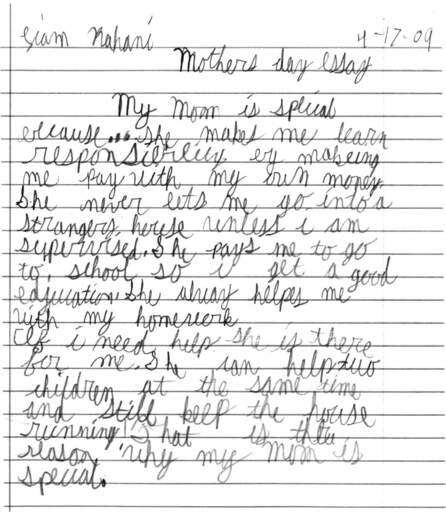 Siam Nahani 4-17-09
Mothers day essay
My Mom is special
because... She makes me learn
responsibility by makeing
me pay with my own money.
She never lets me go into a
strangers house unless i am
supervised. She pays me to go
to school so i get a good
education. She alway helps me
with my homework
If i need help she is there
for me. She can help two
children at the same time
and still keep the house
running. That is the
reason why my Mom is
special.